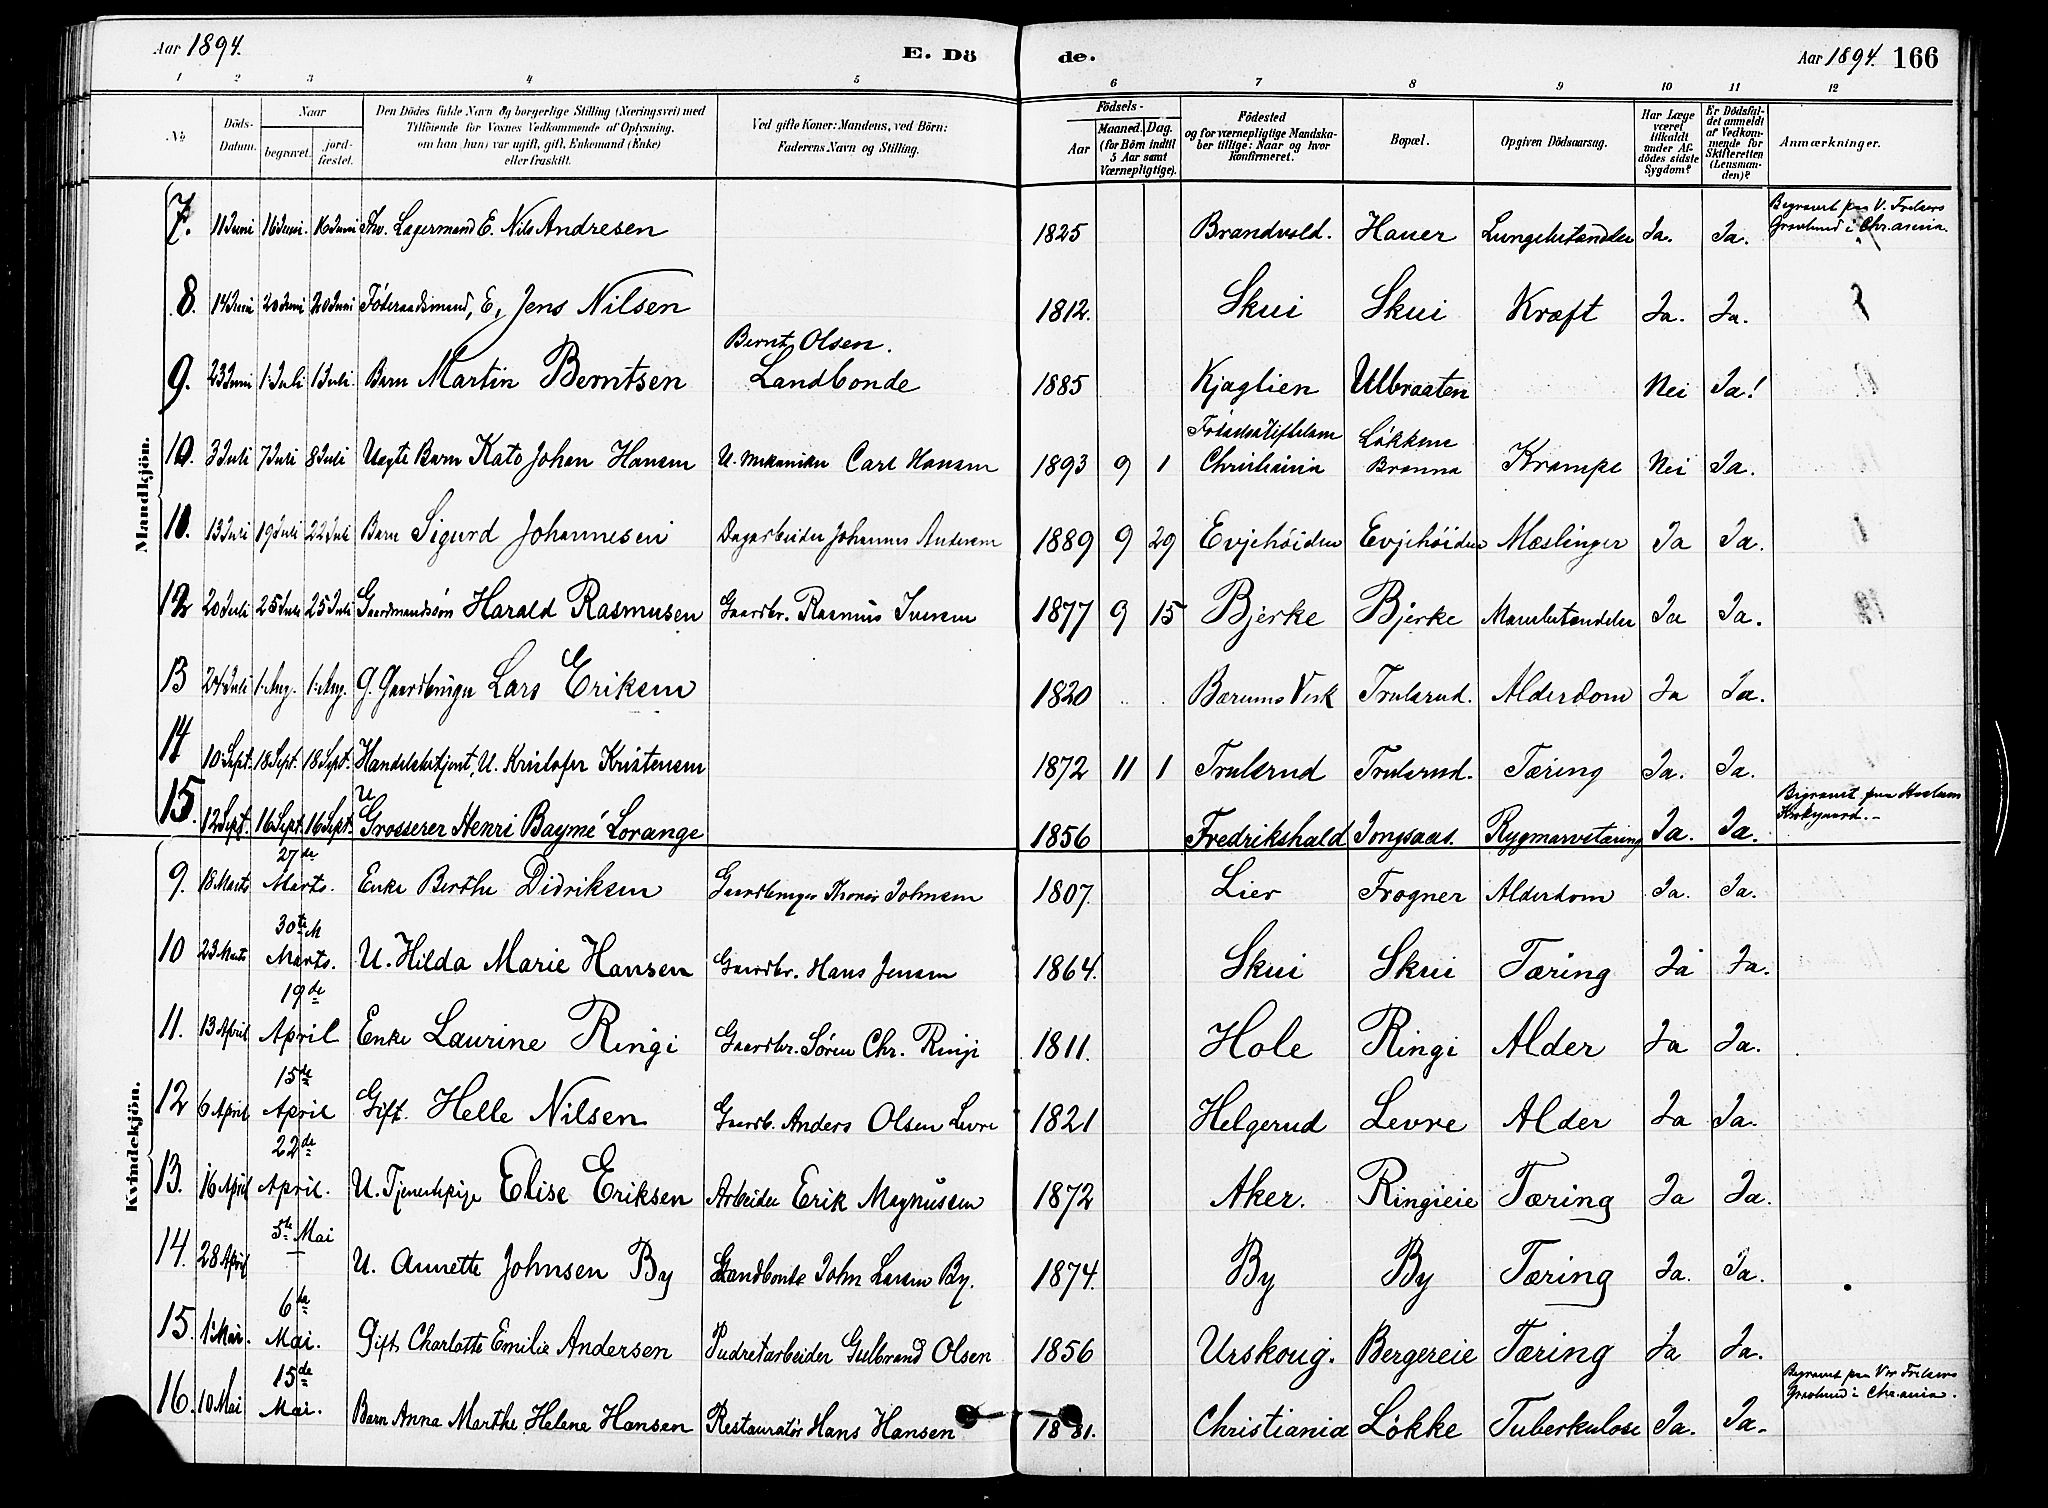 Aar 1894.
E. Dö
de.
Aar 1894. 166
1 2 3 4 5 6 7 8 9 10 11 12
No
Döds-
Datum.
Naar
begravet.
jord-
fæstet.
Den Dödes fulde Navn og borgerlige Stilling (Næringsvei) med
Tilföiende for Voxnes Vedkommende af Oplysning,
om han (hun) var ugift, gift, Enkemand (Enke)
eller fraskilt.
Ved gifte Koner: Mandens, ved Börn:
Faderens Navn og Stilling.
Födsels-
Aar
Maaned. Dag.
(for Börn indtil
5 Aar samt
Værnepligtige).
Födested
og for værnepligtige Mandska-
ber tillige: Naar og hvor
konfirmeret.
Bopæl.
Opgiven Dödsaarsag.
Har Læge
været
tilkaldt
under Af-
dödes sidste
Sygdom?
Er Dödsfal-
det anmeldt
af Vedkom-
mende for
Skifteretten
(Lensman-
den)?
Anmærkninger.
Mandkjön.
7. 11 Juni 16 Juni. 16 Juni Lagermand E. Nils Andresen 1825 Brandvold. Hauer Lungebetændelse Ja. Ja. Begravet paa V. Frelsers
Gravlund i Chr.ania.
8. 14 Juni 20 Juni 20 Juni Föderaadsmand, E, Jens Nilsen 1812. Skui Skui Kræft Ja. Ja.
Bernt Olsen.
9. 23 Juni 1. Juli 1 Juli. Barn Martin Berntsen Landbonde 1885 Kjaglien Ulbraaten Nei Ja!
Födselsstiftelsen Løkkens
10. 3 Juli 7 Juli 8 Juli Uægte Barn Kato Johan Hansen U. Mekaniker Carl Hansen 1893 9 1 Christiania Branna Krampe Nei Ja.
11. 13 Juli 19 Juli 22 Juli Barn Sigurd Johannesen Dagarbeider Johannes Andersen 1889 9 29 Evjehöiden Evjehöiden Meslinger Ja Ja.
12 20 Juli 25 Juli 25 Juli Gaardmandssön Harald Rasmusen Gaardbr. Rasmus Iversen 1877 9 15 Bjerke Bjerke Mavebetændelse Ja Ja.
13 24 Juli 1. Aug. 1. Aug. G. Gaardbruger Lars Eriksen 1820 Bærums Verk Trulsrud. Alderdom Ja Ja.
14 10 Sept. 18 Sept. 18 Sept. Handelsbetjent, U. Kristofer Kristensen 1872 11 1 Trulsrud Trulsrud. Tæring Ja. Ja.
U
15. 12 Sept. 16 Sept. 16 Sept. Grosserer Henri Baymé Lorange 1856 Fredrikshald Jongsaas. Rygmarvstæring Ja. Ja. Begravet paa Haslum
Kirkgaard.
Kvindekjön.
27de
9. 18 Marts Marts. Enke Berthe Didriksen Gaardbruger Thorer Johnsen 1807 Lier Frogner Alderdom Ja. Ja.
30te M
10 23 Marts Marts. U. Hilda Marie Hansen Gaardbr. Hans Jensen 1864. Skui Skui Tæring Ja Ja.
19de
11. 13 April April Enke Laurine Ringi Gaardbr. Sören Chr. Ringi 1811. Hole Ringi Alder Ja Ja.
15de
12 6 April April Gift. Helle Nilsen Gaardb. Anders Olsen Levre 1821 Helgerud Levre Alder Ja Ja.
22de
13. 16 April April. U. Tjenestepige Elise Eriksen Arbeider Erik Magnussen 1872 Aker. Ringieie Tæring Ja Ja.
5te Mai
14. 28 April U. Annette Johnsen By Landbonde John Larsen By. 1874. By By Tæring Ja. Ja.
6te
15. 1. Mai. Mai. Gift Charlotte Emilie Andersen Pudretarbeider Gulbrand Olsen 1856 Urskoug. Bergereie Tæring Ja Ja.
15de
16. 10 Mai Mai. Barn Anna Marthe Helene Hansen Restauratør Hans Hansen 1881. Christiania Løkke Tuberkulose Ja. Ja. Begravet paa Vor Frelsers
Gravlund i Chr.ania.